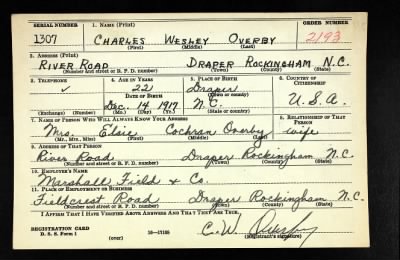 SERIAL NUMBER 1. NAME (Print) ORDER NUMBER
1307 CHARLES WESLEY OVERBY 2193
(First) (Middle) (Last)
2. ADDRESS (Print)
RIVER ROAD DRAPER ROCKINGHAM N.C.
(Number and street or R. F. D. number) (Town) (County) (State)
3. TELEPHONE 4. AGE IN YEARS 5. PLACE OF BIRTH 6. COUNTRY OF CITIZENSHIP
✓ 22 Draper
DATE OF BIRTH (Town or county)
Dec. 14 1917 N.C. U.S.A.
(Exchange) (Number) (Mo.) (Day) (Yr.) (State or country)
7. NAME OF PERSON WHO WILL ALWAYS KNOW YOUR ADDRESS 8. RELATIONSHIP OF THAT PERSON
Mrs. Elsie Cochran Overby wife
(Mr., Mrs., Miss) (First) (Middle) (Last)
9. ADDRESS OF THAT PERSON
River Road Draper Rockingham N.C.
(Number and street or R. F. D. number) (Town) (County) (State)
10. EMPLOYER'S NAME
Marshall Field & Co.
11. PLACE OF EMPLOYMENT OR BUSINESS
Fieldcrest Road Draper Rockingham N.C.
(Number and street or R. F. D. number) (Town) (County) (State)
I AFFIRM THAT I HAVE VERIFIED ABOVE ANSWERS AND THAT THEY ARE TRUE.
REGISTRATION CARD C. W. Overby
D. S. S. Form 1 (over) 16-17105 (Registrant's signature)